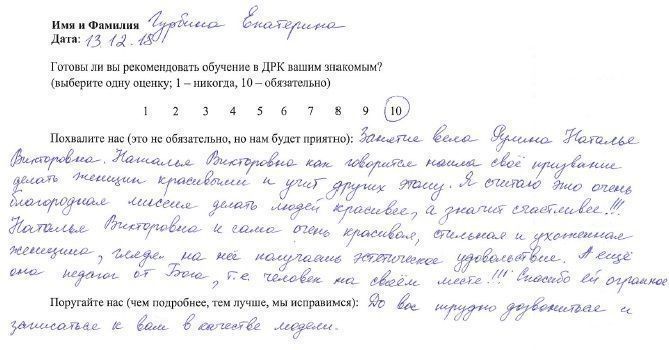 Имя и Фамилия Гурбина Екатерина
Дата: 13.12.18
Готовы ли вы рекомендовать обучение в ДРК вашим знакомым?
(выберите одну оценку; 1 – никогда, 10 – обязательно)
1 2 3 4 5 6 7 8 9 10
Похвалите нас (это не обязательно, но нам будет приятно): Занятие вела Наталья
Викторовна. Наталья Викторовна как говорится нашла своё призвание
делать женщин красивыми и учит других этому. Я считаю это очень
благородная миссия делать людей красивее, а значит счастливее!!!
Наталья Викторовна и сама очень красивая, стильная и ухоженная
женщина, глядя на неё получаешь эстетическое удовольствие. А ещё
она педагог от Бога, т.е. человек на своём месте!!! Спасибо ей огромное
Поругайте нас (чем подробнее, тем лучше, мы исправимся): До вас трудно дозвониться и
записаться к вам в качестве модели.